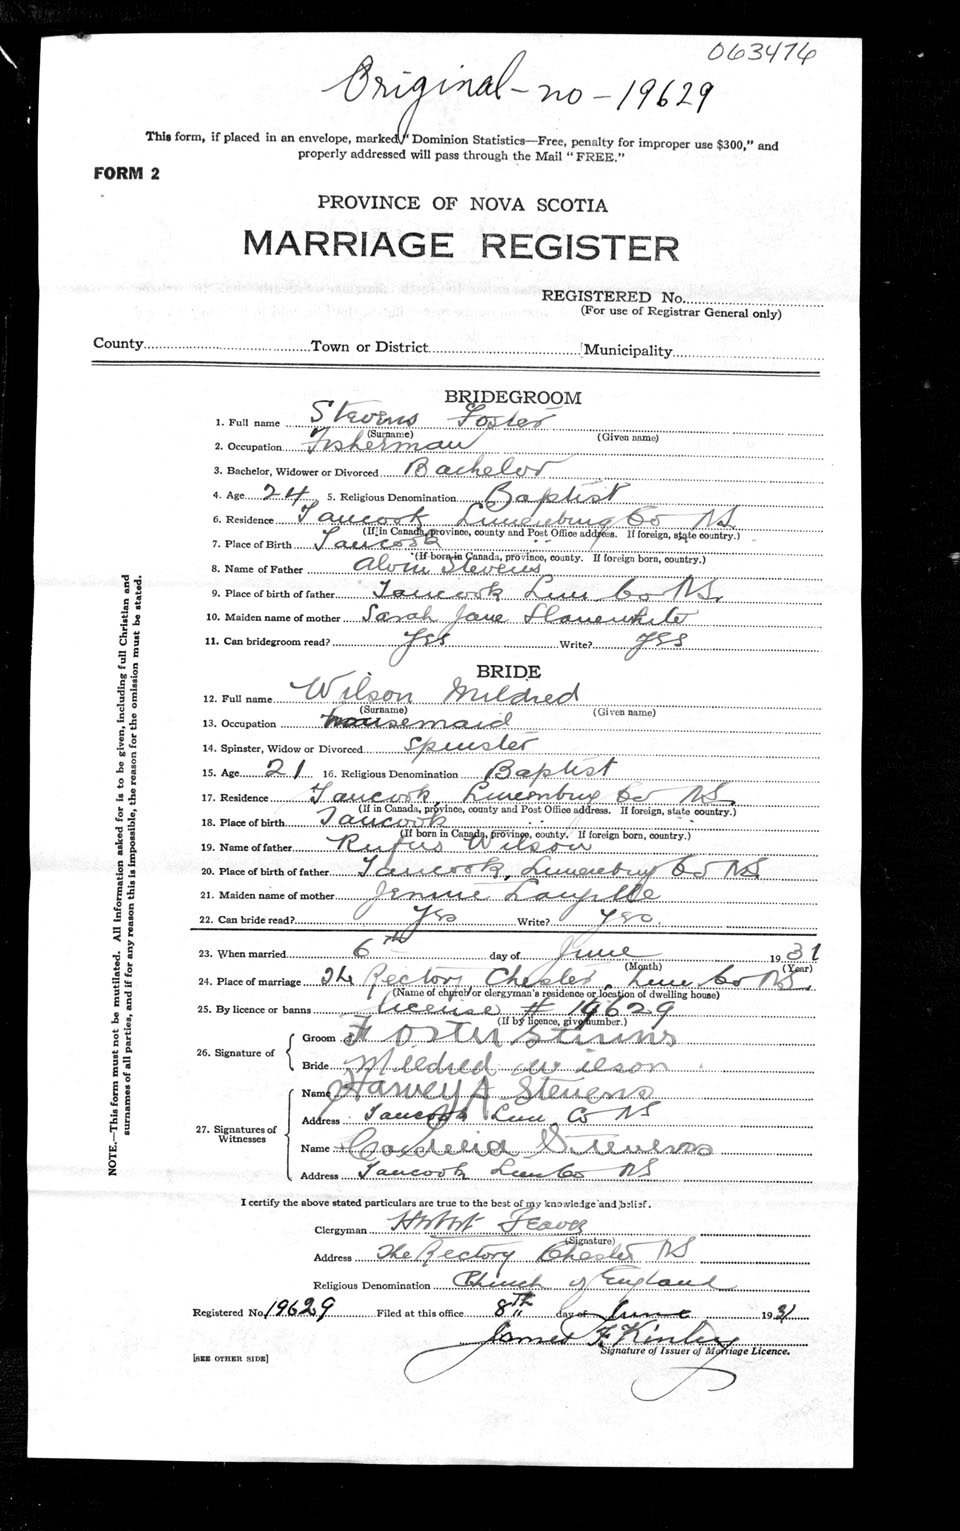 063476
Original - no - 19629
This form, if placed in an envelope, marked "Dominion Statistics—Free, penalty for improper use $300," and
properly addressed will pass through the Mail "FREE."
FORM 2
PROVINCE OF NOVA SCOTIA
MARRIAGE REGISTER
REGISTERED No.
(For use of Registrar General only)
County Town or District Municipality
BRIDEGROOM
1. Full name Stevens Foster
(Surname) (Given name)
2. Occupation Fisherman
3. Bachelor, Widower or Divorced Bachelor
4. Age 24 5. Religious Denomination Baptist
6. Residence Tancook Lunenburg Co NS
(If in Canada, province, county and Post Office address. If foreign, state country.)
7. Place of Birth Tancook
(If born in Canada, province, county. If foreign born, country.)
8. Name of Father Alvin Stevens
9. Place of birth of father Tancook Lun. Co NS.
10. Maiden name of mother Sarah Jane Slauenwhite
11. Can bridegroom read? Yes Write? Yes
BRIDE
12. Full name Wilson Mildred
(Surname) (Given name)
13. Occupation housemaid
14. Spinster, Widow or Divorced Spinster
15. Age 21 16. Religious Denomination Baptist
17. Residence Tancook, Lunenburg Co NS.
(If in Canada, province, county and Post Office address. If foreign, state country.)
18. Place of birth Tancook
(If born in Canada, province, county. If foreign born, country.)
19. Name of father Rufus Wilson
20. Place of birth of father Tancook, Lunenburg Co NS.
21. Maiden name of mother Jennie
22. Can bride read? Yes Write? Yes.
23. When married 6th day of June 1931
(Month) (Year)
24. Place of marriage The Rectory Chester, Lun Co NS.
(Name of church or clergyman's residence or location of dwelling house)
25. By licence or banns license # 19629
(If by licence, give number.)
26. Signature of
Groom Foster Stevens
Bride Mildred Wilson
27. Signatures of Witnesses
Name Harvey A Stevens
Address Tancook Lun. Co NS
Name Stevens
Address Tancook Lun Co NS
I certify the above stated particulars are true to the best of my knowledge and belief.
Clergyman Feaver
(Signature)
Address The Rectory Chester NS
Religious Denomination Church of England
Registered No. 19629 Filed at this office 8th day of June 1931
James F Kinley
Signature of Issuer of Marriage Licence.
[SEE OTHER SIDE]
NOTE.—This form must not be mutilated. All information asked for is to be given, including full Christian and
surnames of all parties, and if for any reason this is impossible, the reason for the omission must be stated.